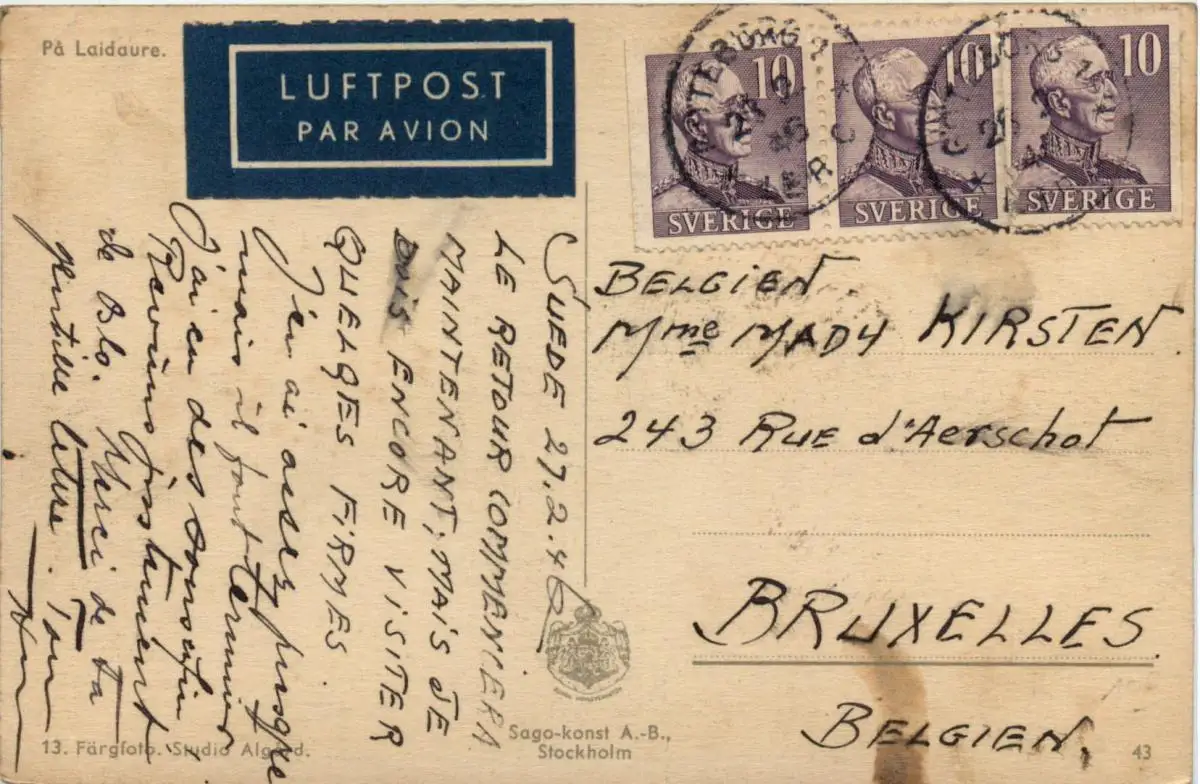 På Laidaure.
LUFTPOST
PAR AVION
10
SVERIGE
10
SVERIGE
10
SVERIGE
GÖTEBORG 1
SUEDE 27.2.46
LE RETOUR COMMENCERA
MAINTENANT, MAIS JE
DOIS ENCORE VISITER
QUELQES FIRMES
J'en ai assez presque
mais il faut terminer
J'ai eu des
justement
de Merci de ta
gentille lettre. Ton
BELGIEN.
Mme MADY KIRSTEN.
243 RUE d'Aerschot
BRUXELLES.
BELGIEN.
13. Färgfoto. Studio Algård.
Sago-konst A.-B.,
Stockholm
43